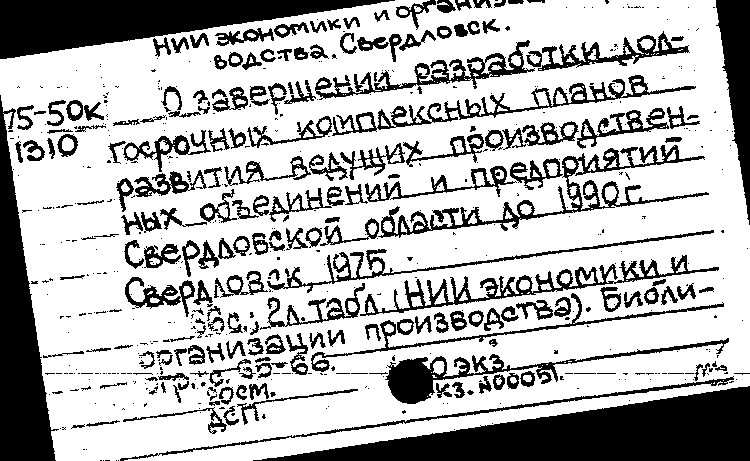 НИИ экономики и организа
водства. Свердловск.
75-50к
1310
О завершении разработки дол-
госрочных комплексных планов
развития ведущих производствен-
ных объединений и предприятий
Свердловской области до 1990 г.
Свердловск, 1975.
66с.; 2л. табл. (НИИ экономики и
организации производства). Библи-
огр.: с. 65-66.
экз.
кз. №00051.
20см.
ДСП.